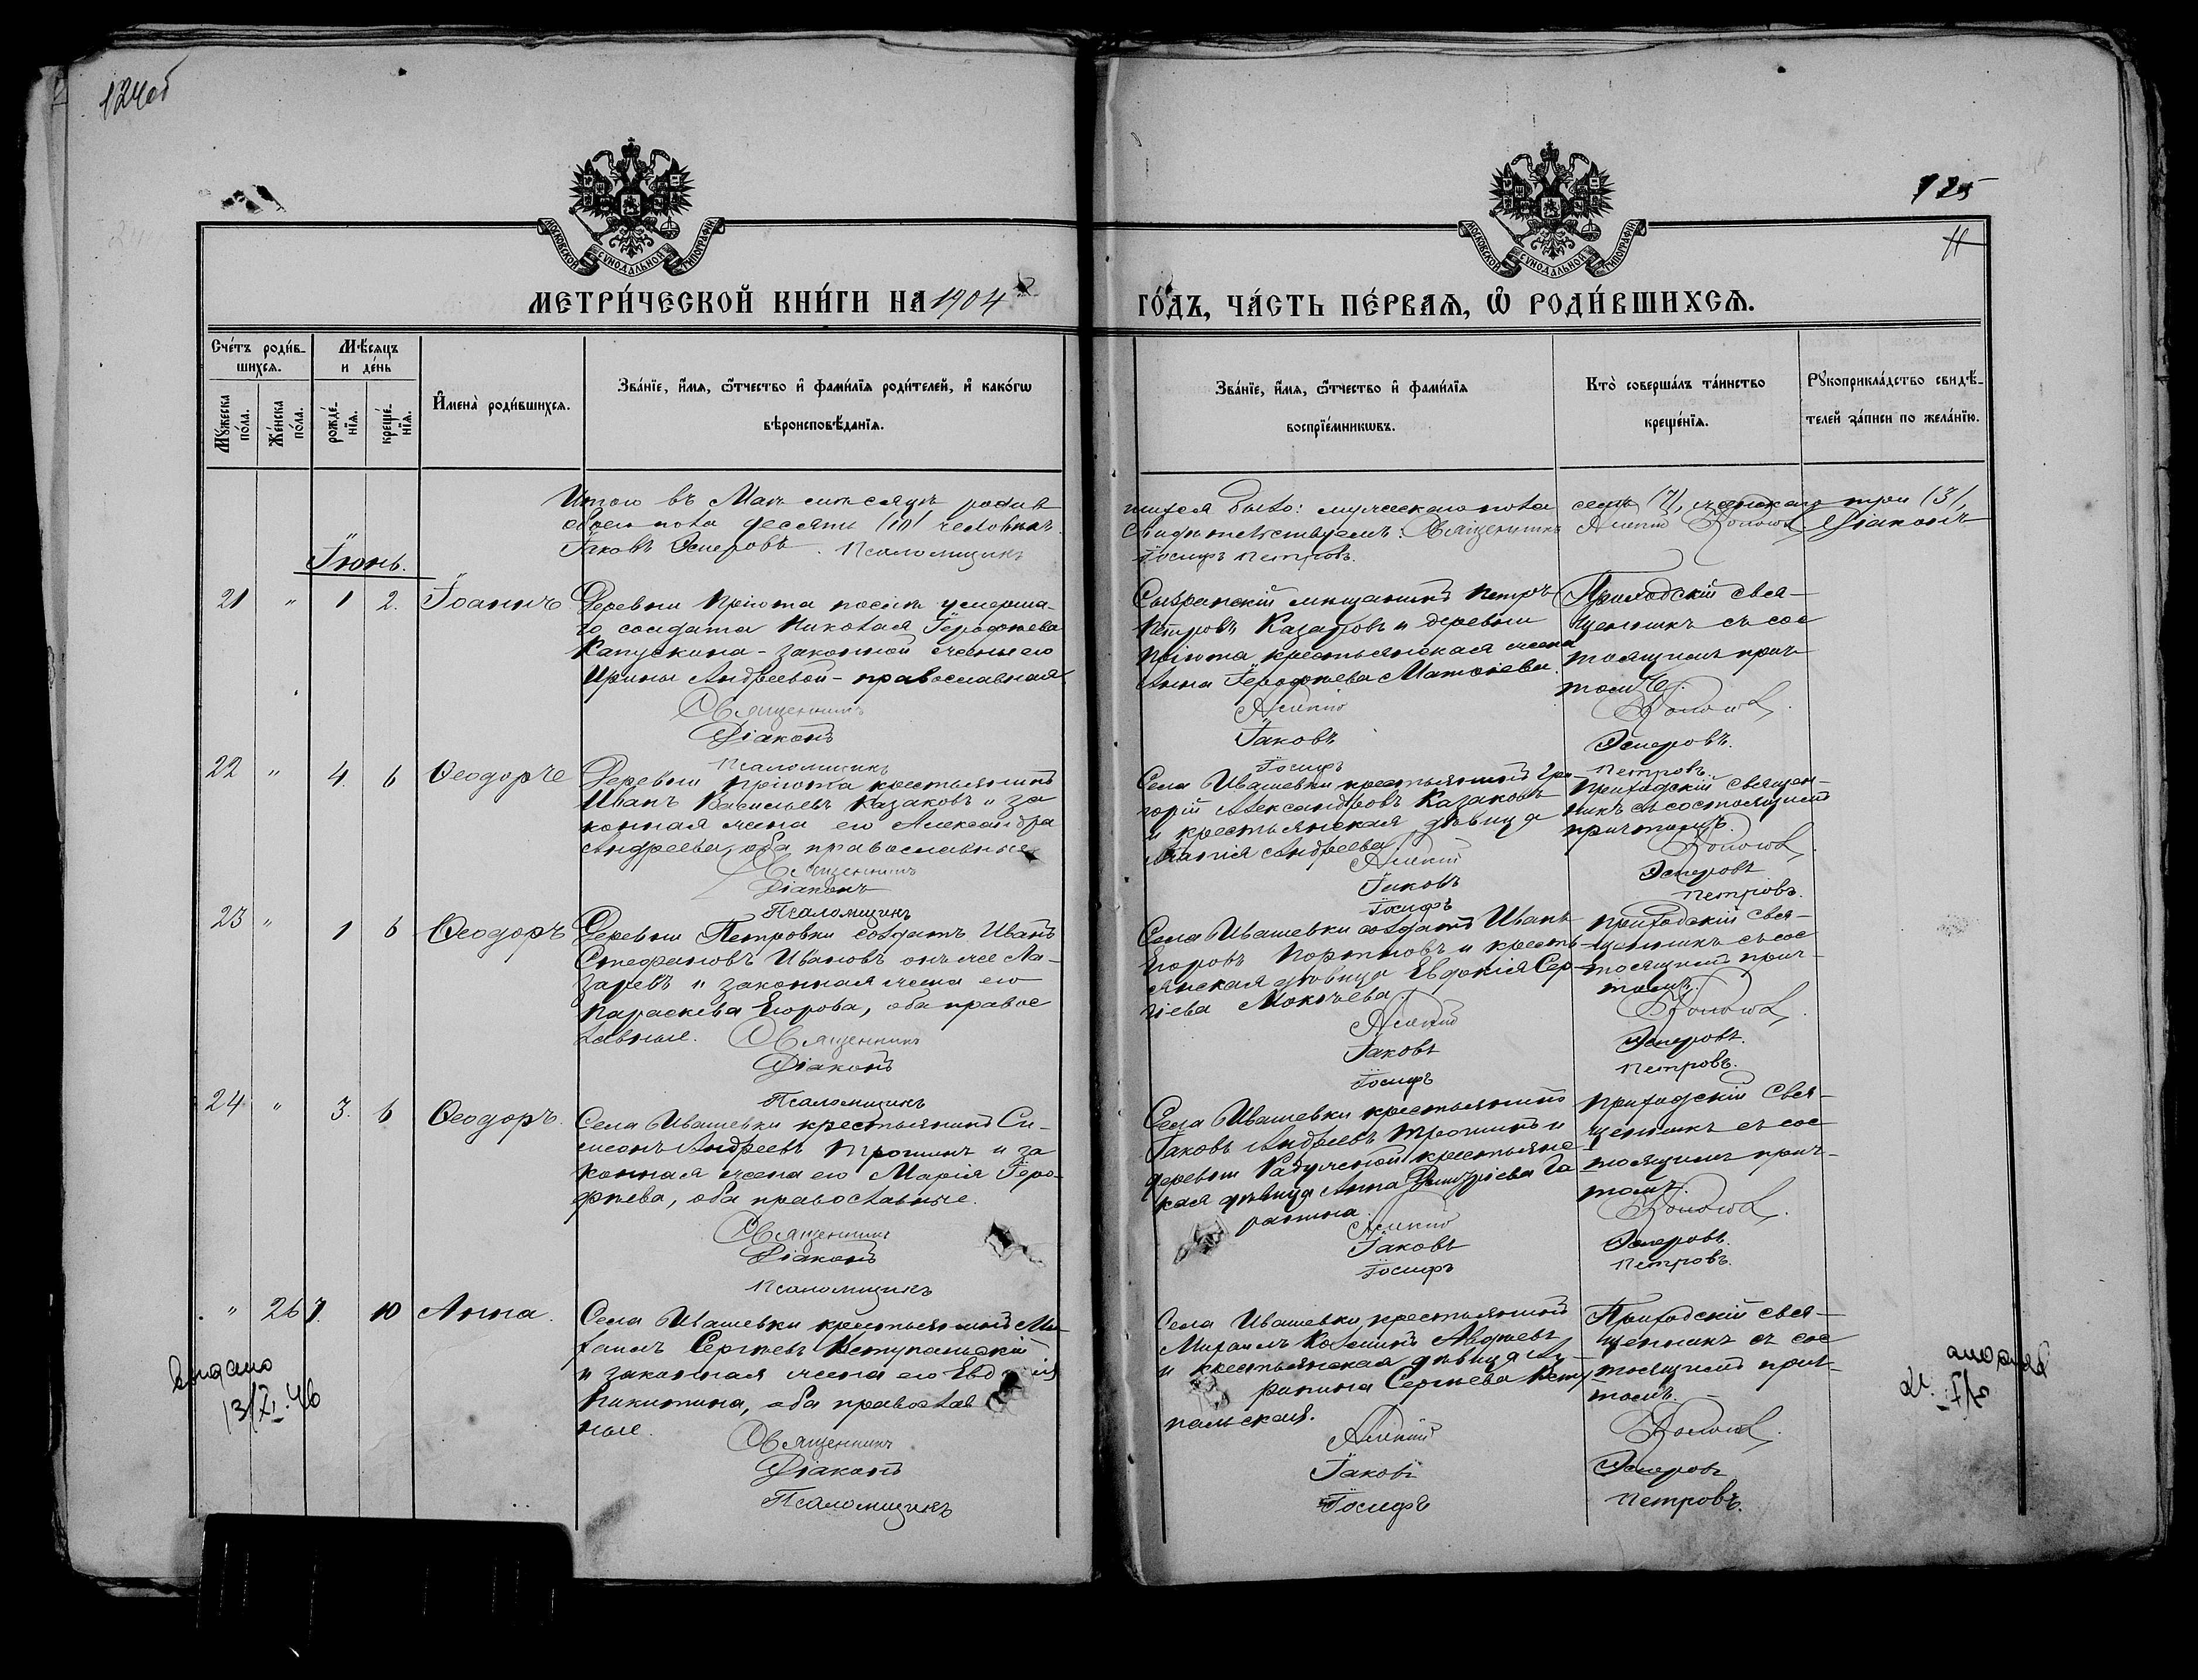 124об
125
11
МОСКОВСКОЙ СѴНОДАЛЬНОЙ ТИПОГРАФІИ
МОСКОВСКОЙ СѴНОДАЛЬНОЙ ТИПОГРАФІИ
МЕТРИ́ЧЕСКОЙ КНИ́ГИ НА 1904
ГО́ДЪ, ЧА́СТЬ ПЕ́РВАЯ, Ѡ҆ РОДИ́ВШИХСЯ.
Сче́тъ роди́в-
шихся.
Мѣ́сяцъ
и де́нь
Мꙋ́жеска
по́ла.
Же́нска
по́ла.
рожде́-
нїя.
креще́-
нїя.
И҆мена̀ роди́вшихся.
Зва́нїе, и҆́мя, ѻ҆́тчество и҆ фами́лїя роди́телей, и҆ како́гѡ
вѣроисповѣ́данїя.
Зва́нїе, и҆́мя, ѻ҆́тчество и҆ фами́лїя
воспрїе́мникѡвъ.
Кто̀ соверша́лъ та́инство
креще́нїя.
Рꙋкоприкла́дство свидѣ́-
телей за́писи по жела́нїю.
Итого въ Маѣ мѣсяцѣ родив
шихся было: мужескаго пола семь (7), женскаго три (3),
обоего пола десять (10) человѣкъ.
Свидѣтельствуемъ: Священникъ Алексій Діаконъ
Іаковъ Эсперовъ. Псаломщикъ
Іосифъ Петровъ.
Іюнь.
21 " 1 2. Іоаннъ
Деревни Пріюта послѣ умерша-
го солдата Николая Іерофѣева
Капускина - законной жены его
Ирины Андреевой - православная
Священникъ
Діаконъ
Псаломщикъ
Сызранскій мѣщанинъ Петръ
Петровъ и деревни
Пріюта крестьянская жена
Анна Іерофѣева
Алексій
Іаковъ
Іосифъ
Приходскій свя-
щенникъ съ сос
тоящимъ прич-
томъ.
Эсперовъ.
Петровъ.
22 " 4. 6 Ѳеодоръ
Деревни Пріюта крестьянинъ
Иванъ Васильевъ Казаковъ и за
конная жена его Александра
Андреева, оба православные
Священникъ
Діаконъ
Псаломщикъ
Села Ивашевки крестьянинъ Гри-
горій Александровъ Казаковъ
и крестьянская дѣвица
Андреева
Алексій
Іаковъ
Іосифъ
Приходскій священ-
никъ съ состоящимъ
причтомъ.
Эсперовъ
Петровъ.
23 " 1 6 Ѳеодоръ
Деревни Петровки солдатъ Иванъ
Стефановъ Ивановъ онъ же Ла-
заревъ и законная жена его
Параскева Егорова, оба правос
лавные. Священникъ
Діаконъ
Псаломщикъ
Села Ивашевки солдатъ Иванъ
Егоровъ и кресть-
янская дѣвица Евдокія Сер-
гіева
Алексій
Іаковъ
Іосифъ
Приходскій свя-
щенникъ съ сос
тоящимъ прич-
томъ.
Эсперовъ.
Петровъ.
24 " 3. 6 Ѳеодоръ.
Села Ивашевки крестьянинъ Си-
меонъ Андреевъ Трошинъ и за
конная жена его Марія Іеро-
фѣева, оба православные.
Священникъ
Діаконъ
Псаломщикъ
Села Ивашевки крестьянинъ
Іаковъ Андреевъ Трошинъ и
деревни крестьянс
кая дѣвица Анна Димитріева Га
ранина.
Алексій
Іаковъ
Іосифъ
Приходскій свя-
щенникъ съ сос
тоящимъ прич-
томъ.
Эсперовъ.
Петровъ.
" 26 7. 10 Анна.
Села Ивашевки крестьянинъ Ми-
хаилъ Сергѣевъ
и законная жена его
Никитина, оба православ
ные.
Священникъ
Діаконъ
Псаломщикъ
Села Ивашевки крестьянинъ
Михаилъ Авдѣевъ
и крестьянская дѣвица
Сергѣева
пальская.
Алексій
Іаковъ
Іосифъ
Приходскій свя-
щенникъ съ сос
тоящимъ прич-
томъ.
Эсперовъ
Петровъ.
Выдано
13/XI.46